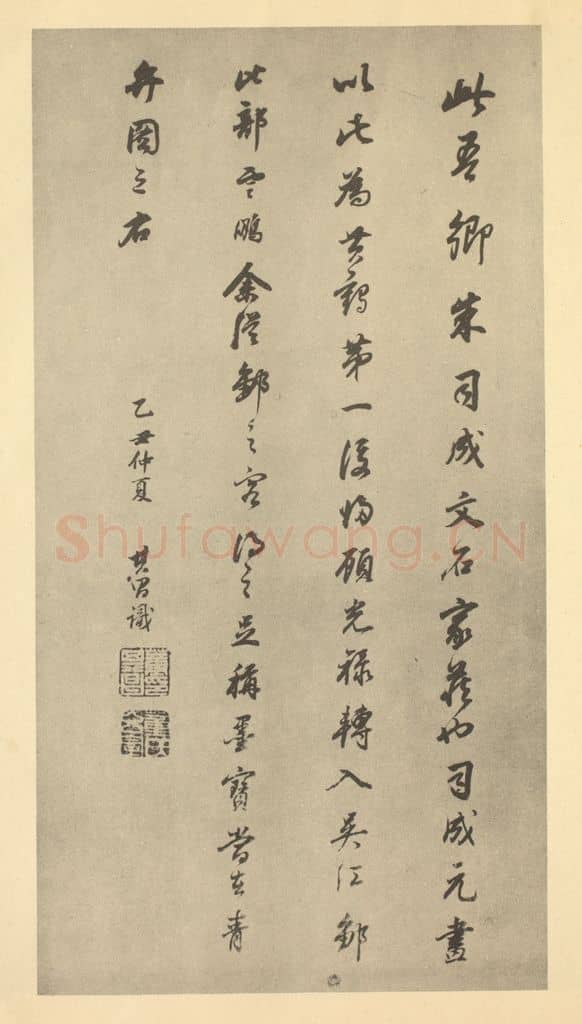 此吾鄉朱司成文石家藏也司成元畫
以此為黃鶴第一後歸顧光祿轉入吳江鄒
比部雲鵬余從鄒之客得之足稱墨寶當在青
弁圖之右
乙丑仲夏 其昌識
Shufawang.CN